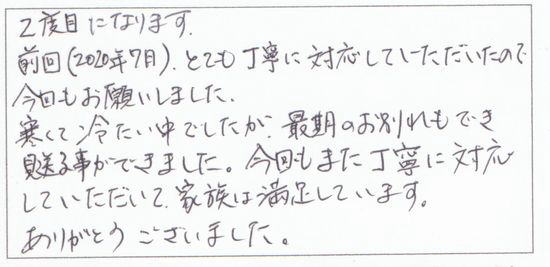 2度目になります.
前回(2020年7月).とても丁寧に対応していただいたので
今回もお願いしました.
寒くて冷たい中でしたが、最期のお別れもでき
見送る事ができました。今回もまた丁寧に対応
していただいて.家族は満足しています。
ありがとうございました。